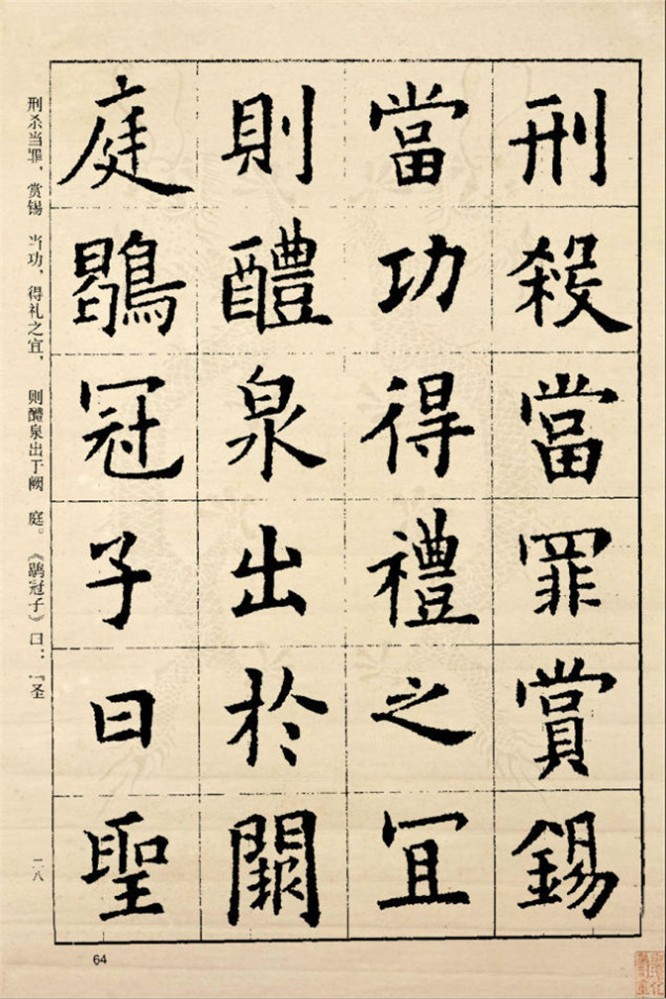 刑殺當罪賞錫
當功得禮之冝
則醴泉出於闕
庭鶡冠子曰聖
刑杀当罪，赏锡 当功，得礼之宜， 则醴泉出于阙 庭。《鹖冠子》曰：“圣
二八
64